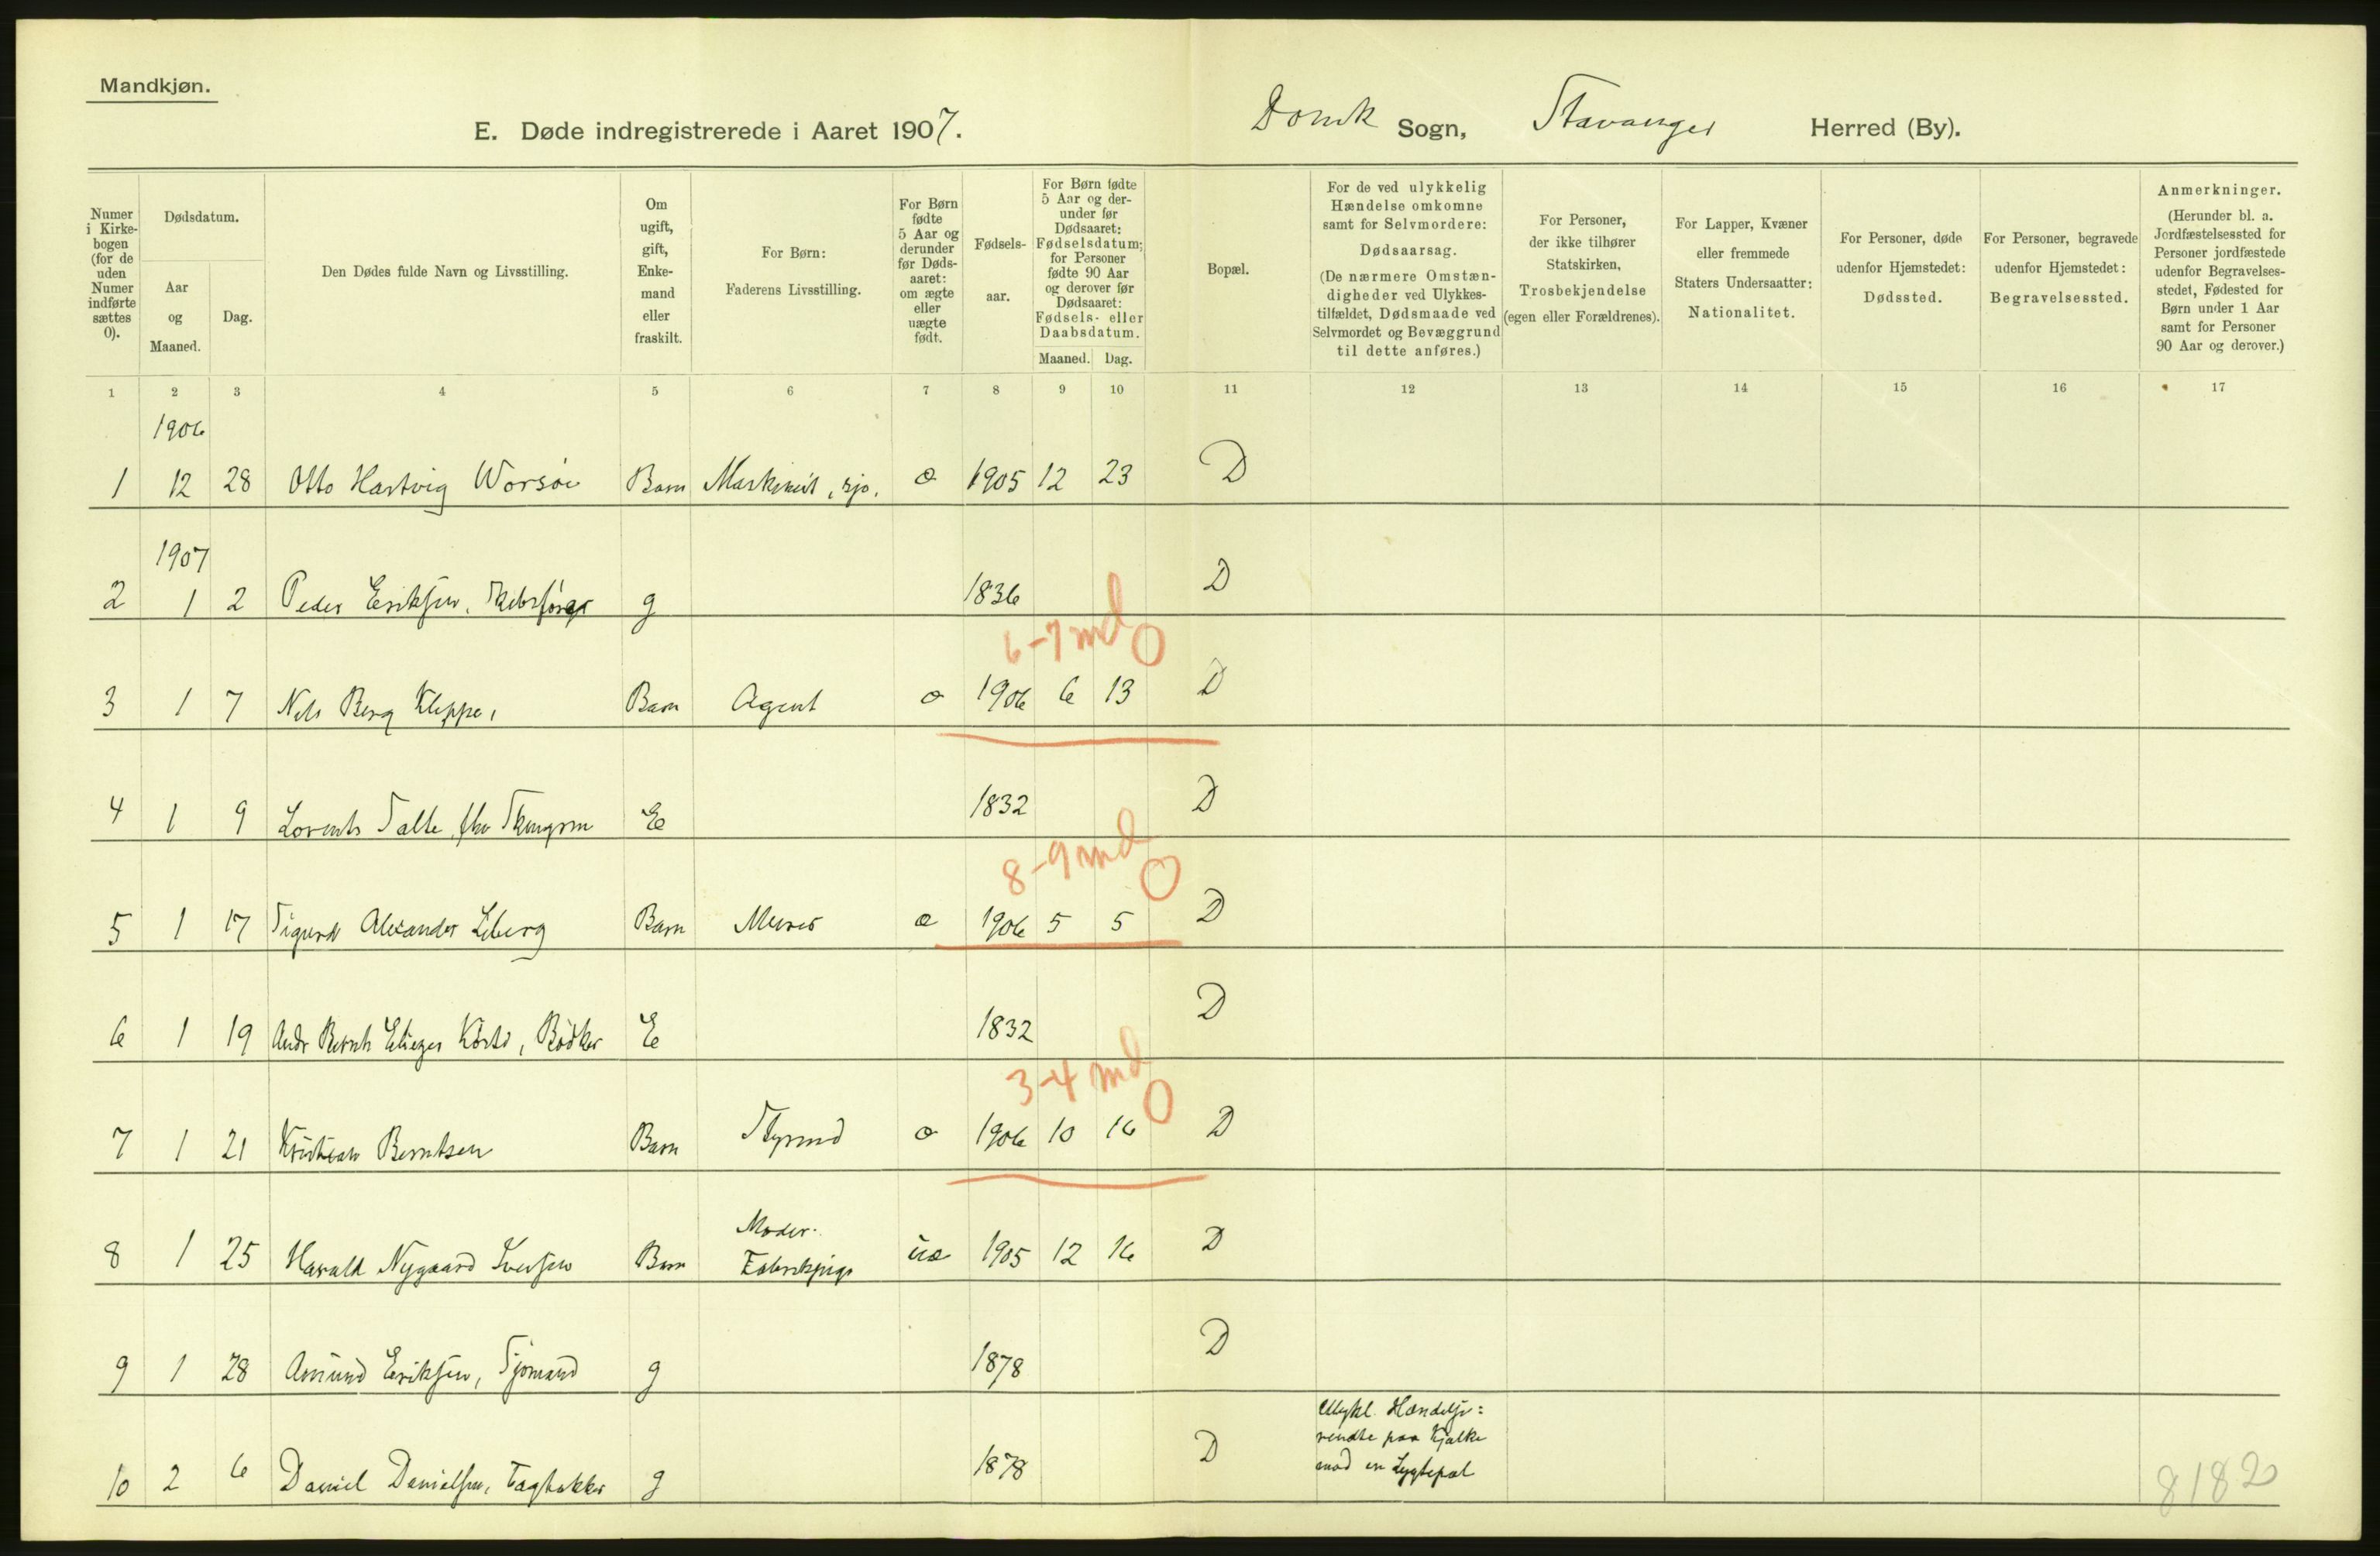 Mandkjøn.
E. Døde indregistrerede i Aaret 1907. Domk Sogn, Stavanger Herred (By).
Numer i Kirkebogen (for de uden Numer indførte sættes 0).
Dødsdatum.
Aar og Maaned.
Dag.
Den Dødes fulde Navn og Livsstilling.
Om ugift, gift, Enkemand eller fraskilt.
For Børn: Faderens Livsstilling.
For Børn fødte 5 Aar og derunder før Dødsaaret: om ægte eller uægte født.
Fødselsaar.
For Børn fødte 5 Aar og derunder før Dødsaaret: Fødselsdatum; for Personer fødte 90 Aar og derover før Dødsaaret: Fødsels- eller Daabsdatum.
Maaned. Dag.
Bopæl.
For de ved ulykkelig Hændelse omkomne samt for Selvmordere: Dødsaarsag. (De nærmere Omstændigheder ved Ulykkestilfældet, Dødsmaade ved Selvmordet og Bevæggrund til dette anføres.)
For Personer, der ikke tilhører Statskirken, Trosbekjendelse (egen eller Forældrenes).
For Lapper, Kvæner eller fremmede Staters Undersaatter: Nationalitet.
For Personer, døde udenfor Hjemstedet: Dødssted.
For Personer, begravede udenfor Hjemstedet: Begravelsessted.
Anmerkninger. (Herunder bl. a. Jordfæstelsessted for Personer jordfæstede udenfor Begravelsesstedet, Fødested for Børn under 1 Aar samt for Personer 90 Aar og derover.)
1 2 3 4 5 6 7 8 9 10 11 12 13 14 15 16 17
1906
1 12 28 Otto Hartvig Worsøe Barn Maskinist, sjo. æ 1905 12 23 D
1907
2 1 2 Peder Eriksen, Skibsfører g 1836 D
6-7 md 0
3 1 7 Nils Berg Kleppe, Barn Agent æ 1906 6 13 D
4 1 9 Lorents Salte, E 1832 D
8-9 md 0
5 1 17 Sigurd Alexander Barn Murer æ 1906 5 5 D
6 1 19 Andr Bernh Eliezer Bødker E 1832 D
3-4 md 0
7 1 21 Kristian Berntsen Barn Styrmd æ 1906 10 16 D
Moder:
8 1 25 Harald Nygaard Iversen Barn Fabrikpige uæ 1905 12 16 D
9 1 28 Amund Eriksen, Sjømand g 1878 D
Ulykl. Hændelse:
rendte paa Kjælke
mod en Lygtepæl
10 2 6 Daniel Danielsen, Tagtækker g 1878 D
8182